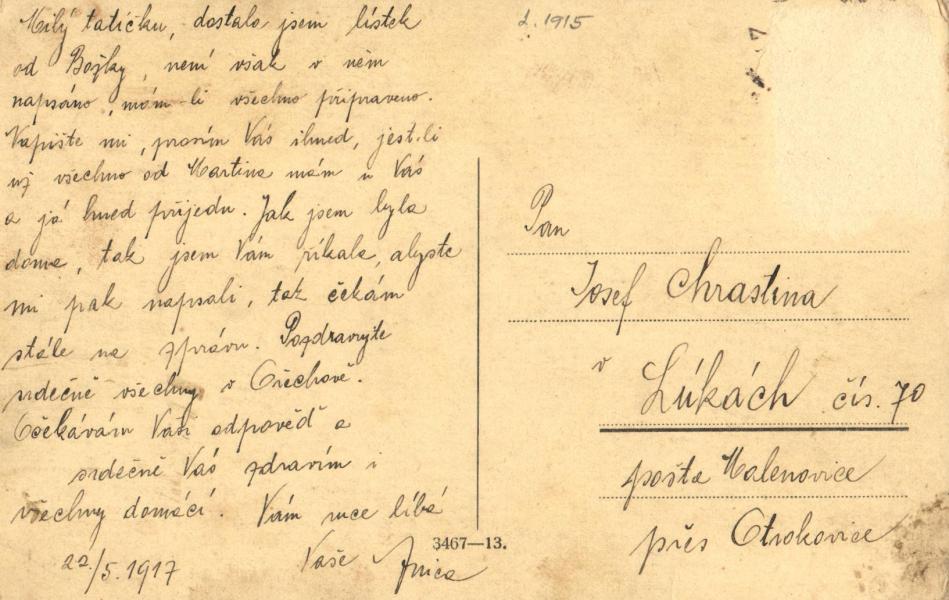 Milý tatíčku, dostala jsem lístek
od Božky, není však v něm
napsáno, mám-li všechno připraveno.
Napište mi, prosím Vás ihned, jest-li
už všechno od Martina mám u Vás
a já hned přijedu. Jak jsem byla
doma, tak jsem Vám říkala, abyste
mi pak napsali, tož čekám
stále na zprávu. Pozdravujte
srdečně všechny v Ořechově.
Očekávám Vaši odpověď a
srdečně Vás zdravím i
všechny domácí. Vám ruce líbá
Vaše
22/5. 1917
3467—13.
1915
Pan
Josef Chrastina
v
Lúkách čís. 70
pošta Malenovice
přes Otrokovice